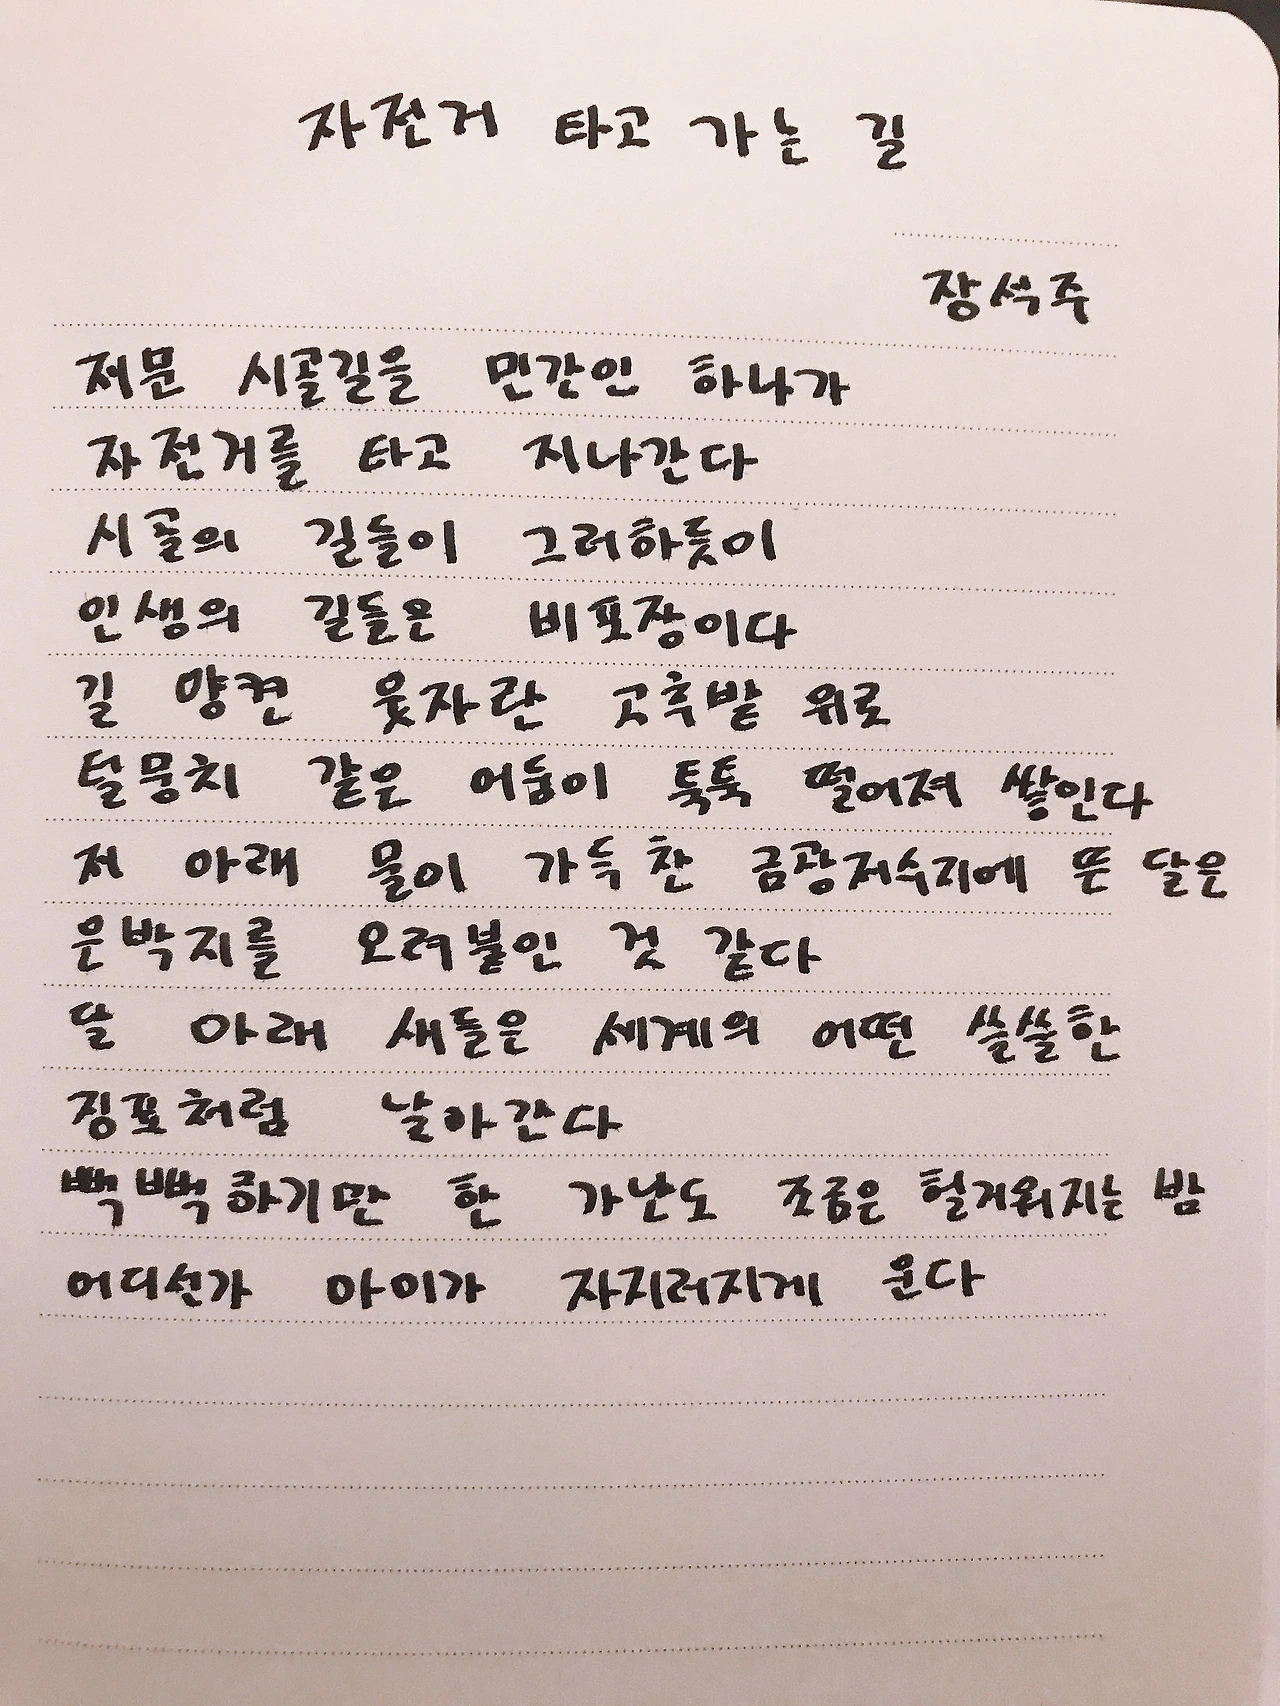 자전거 타고 가는 길
장석주
저문 시골길을 민간인 하나가
자전거를 타고 지나간다
시골의 길들이 그러하듯이
인생의 길들은 비포장이다
길 양켠 웃자란 고추밭 위로
털뭉치 같은 어둠이 툭툭 떨어져 쌓인다
저 아래 물이 가득 찬 금광저수지에 뜬 달은
은박지를 오려붙인 것 같다
달 아래 새들은 세계의 어떤 쓸쓸한
징표처럼 날아간다
빽빽하기만 한 가난도 조금은 헐거워지는 밤
어디선가 아이가 자지러지게 운다